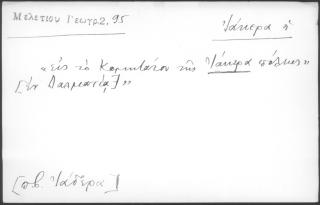 Μελετίου Γεωγρ. 2, 95
Ἰάκερα ἡ
«εἰς τὸ Κομιτᾶτον τῆς Ἰάκερα πόλεως»
[ἐν Δαλματίᾳ]»
[πβ. Ἰάδερα]